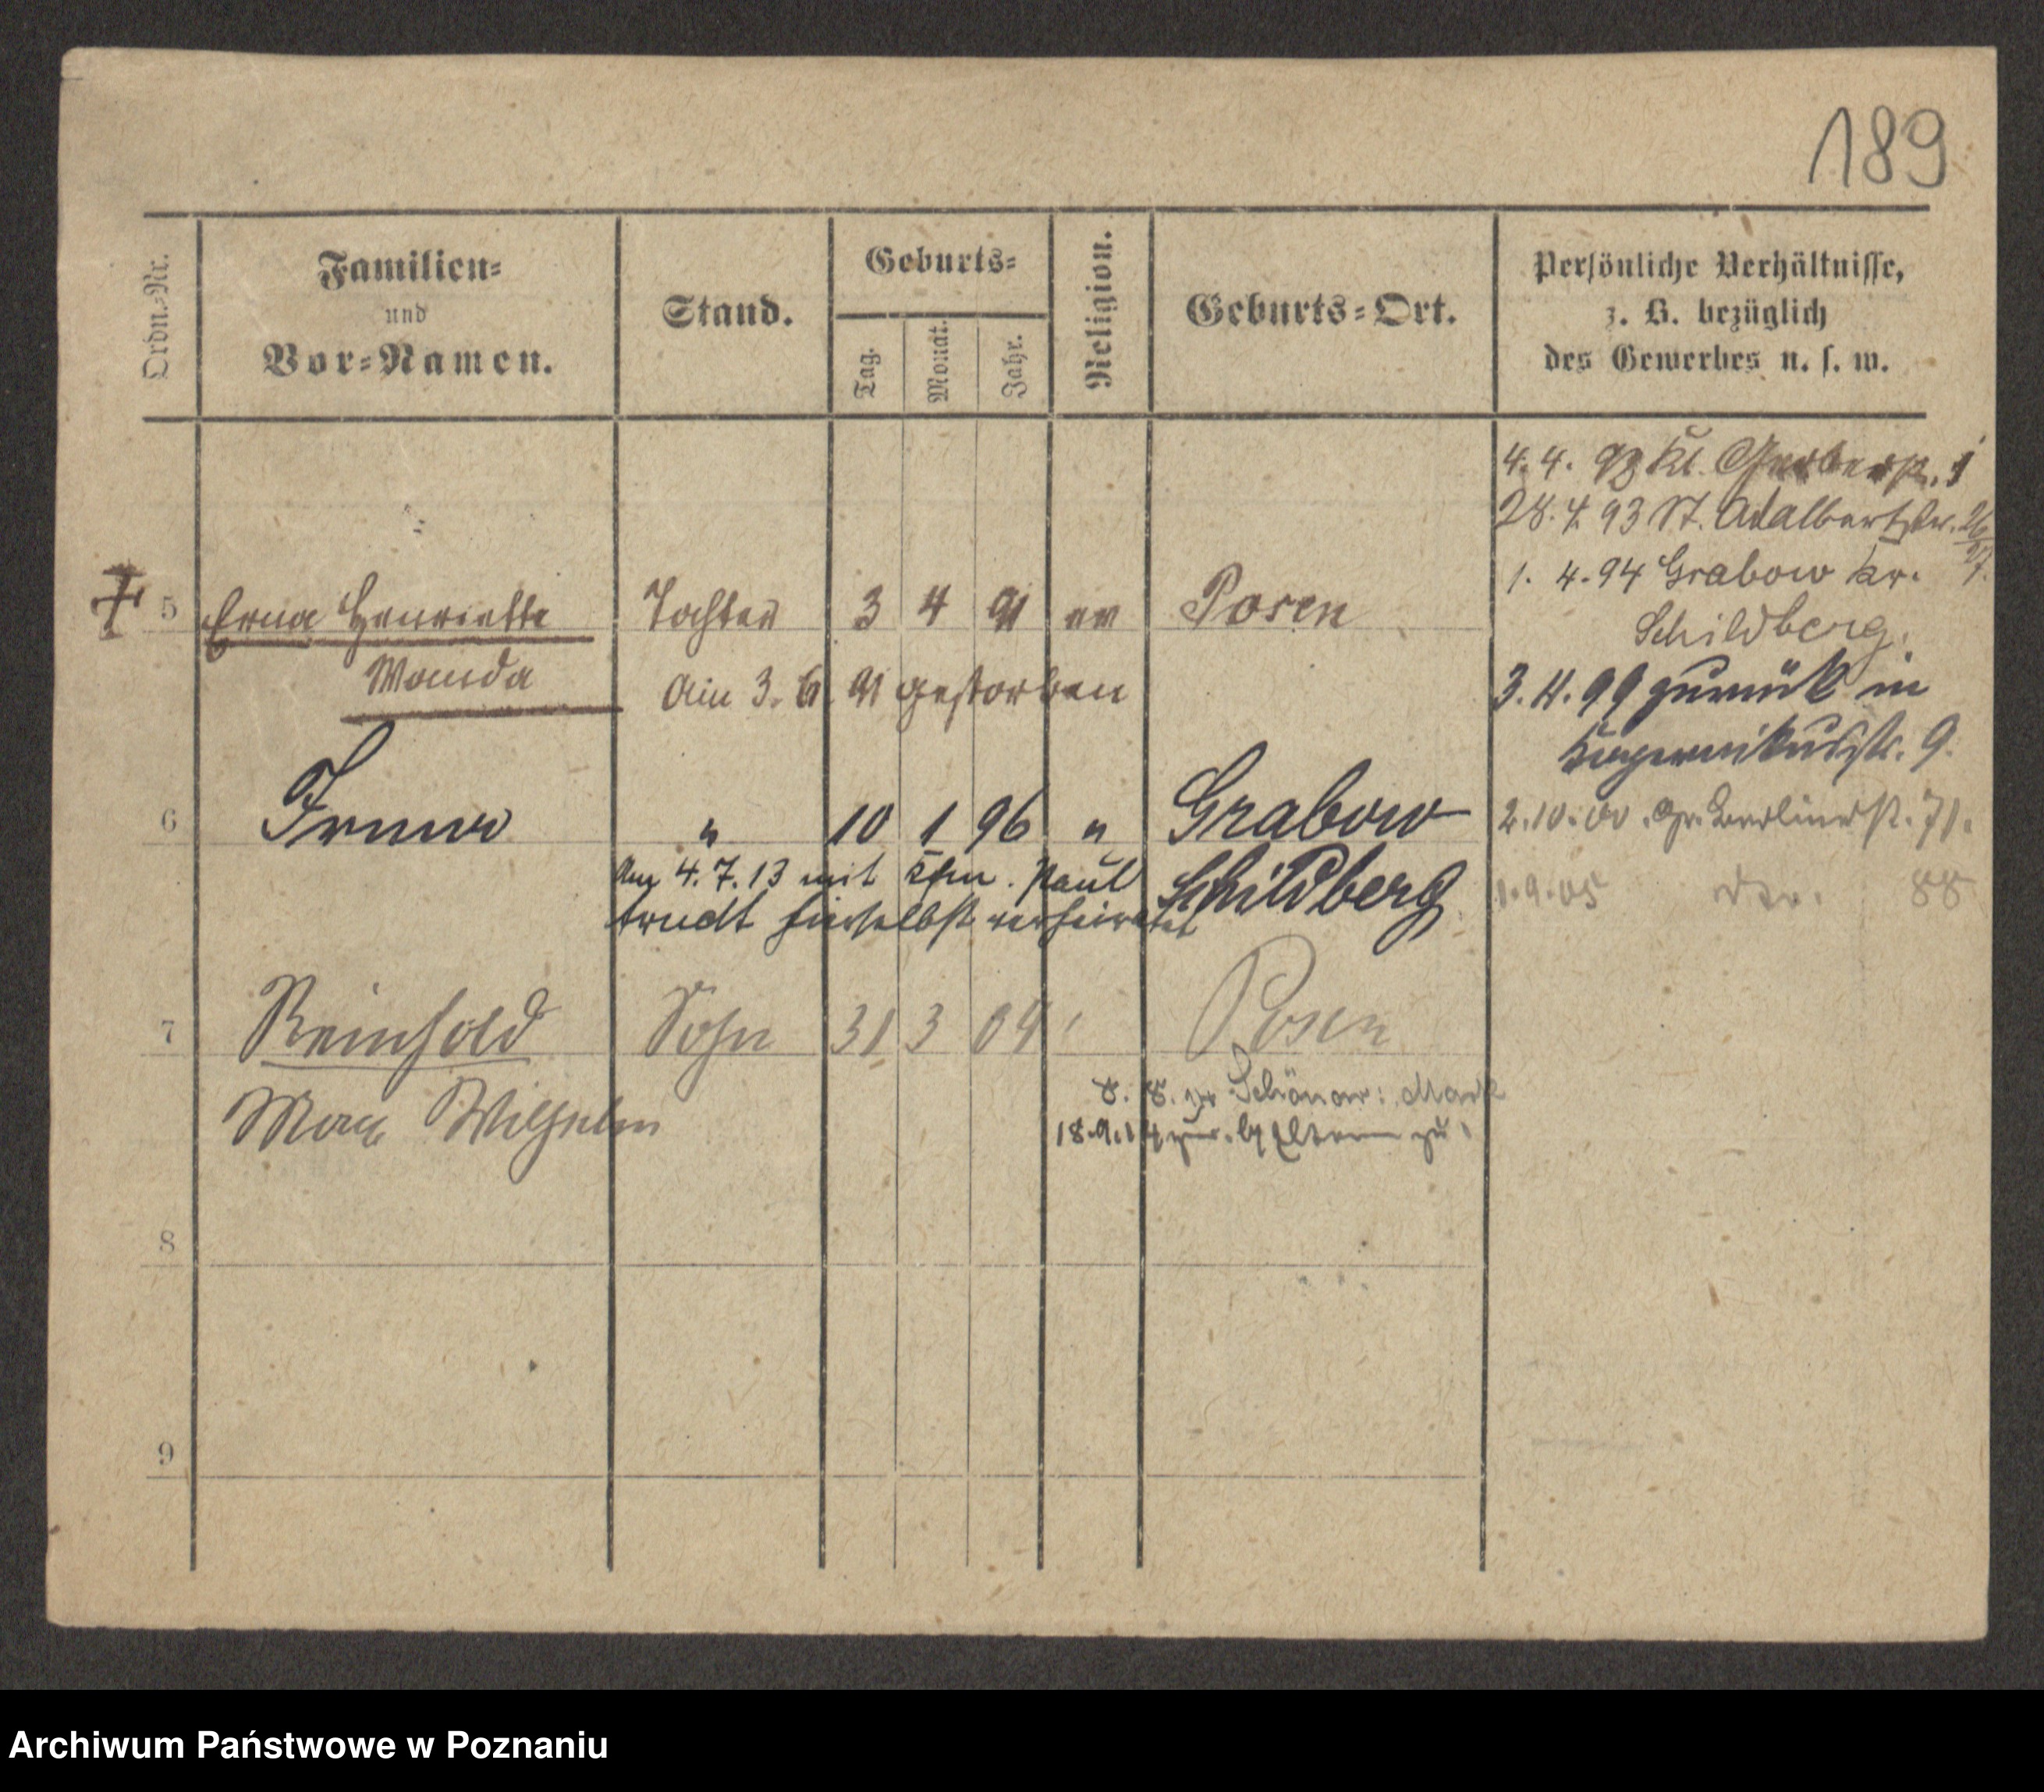 189
Ordn.-Nr.
Familien-
und
Vor-Namen.
Stand.
Geburts-
Tag.
Monat.
Jahr.
Religion.
Geburts-Ort.
Persönliche Verhältnisse,
z. B. bezüglich
des Gewerbes u. s. w.
4. 4. 93 Kl. Gerberstr.
28. 4. 93 St. Adalbertstr.
1. 4. 94 Grabow Kr.
Schildberg.
5 Erna Henriette Tochter 3 4 91 ev Posen
Wanda
Am 3. 6. 91 gestorben
3. 4. 99 zurück in
9.
6 Irma " 10 1 96 " Grabow
Schildberg
2. 10. 00. Gr. Berlinerstr. 71.
Am 4. 7. 13 mit Kfm. Paul
Arndt hierselbst verheiratet
1. 9. 05 88
7 Reinhold Sohn 31 3 04 Posen
Max Wilhelm
8. 8.
18. 9. 14 Eltern zu
8
9
Archiwum Państwowe w Poznaniu